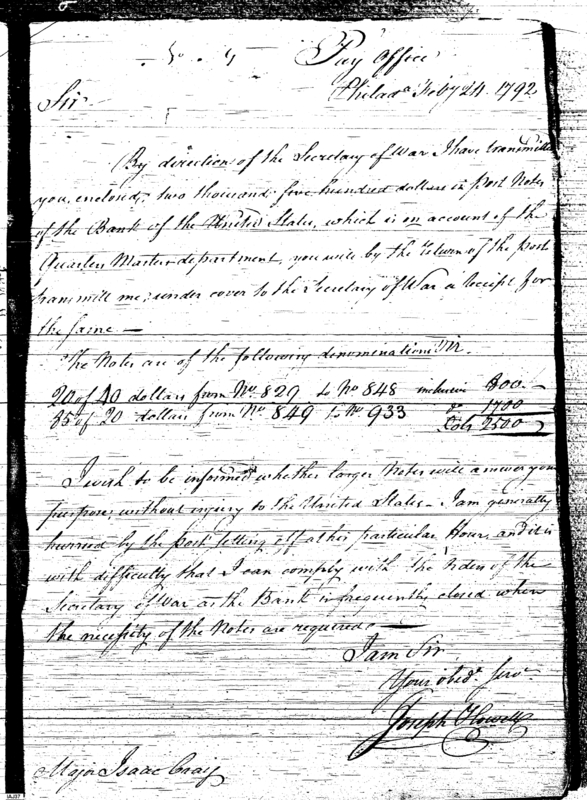 No. 4
Pay Office
Philada Feby 24. 1792
Sir
By direction of the Secretary of War I have transmitted
you, enclosed, two thousand five hundred dollars in Post Notes
of the Bank of the United States, which is on account of the
Quarter Masters department, you will by the return of the post
transmitt me, under cover to the Secretary of War a Receipt for
the same —
The Notes are of the following denominations Viz.
20 of 40 dollars from No. 829 to No 848 inclusive 800. —
85 of 20 dollars from No. 849 to No 933 do 1700
Dolls 2500
I wish to be informed whether larger Notes will answer your
purpose, without injury to the United States — I am generally
hurried by the post setting off at this particular Hour, and it is
with difficulty that I can comply with the Orders of the
Secretary of War as the Bank is frequently closed when
the necessity of the Notes are required —
I am Sir
Your obedt. Servt.
Joseph Howell
Major Isaac Craig